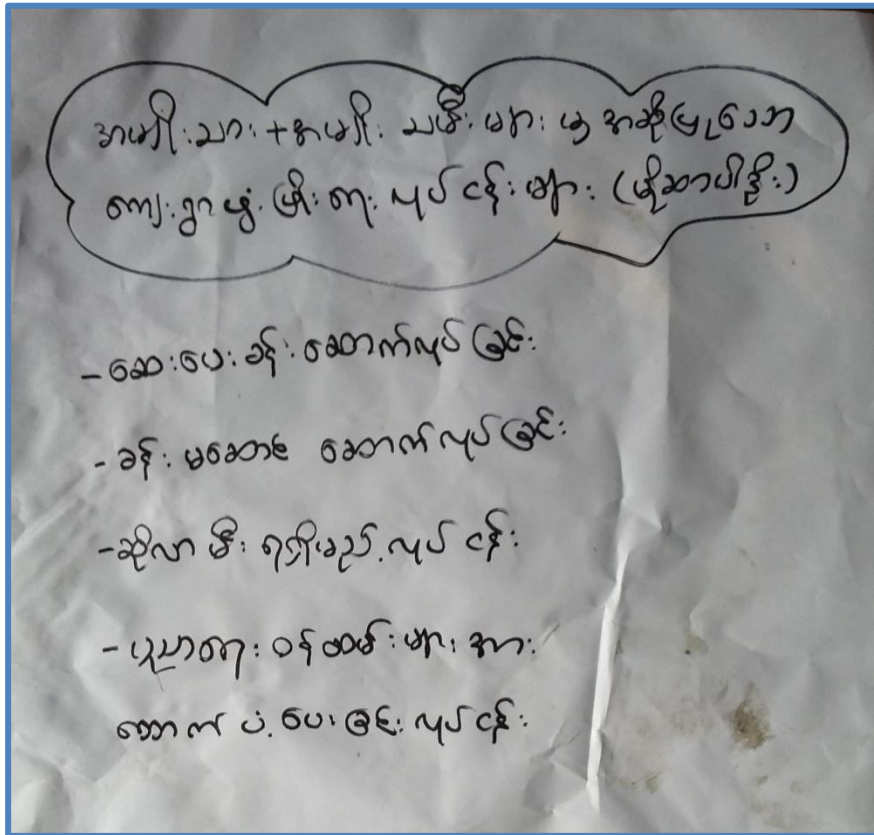 အမျိုးသား+အမျိုးသမီးများမှ အဆိုပြုသော
ကျေးရွာဖွံ့ဖြိုးရေးလုပ်ငန်းများ (မိုဆာပါဒိုး)
-ဆေးပေးခန်းဆောက်လုပ်ခြင်း
-ခန်းမဆောင် ဆောက်လုပ်ခြင်း
-ဆိုလာမီးရရှိမည့်လုပ်ငန်း
-ပညာရေးဝန်ထမ်းများအား
ထောက်ပံ့ပေးခြင်းလုပ်ငန်း